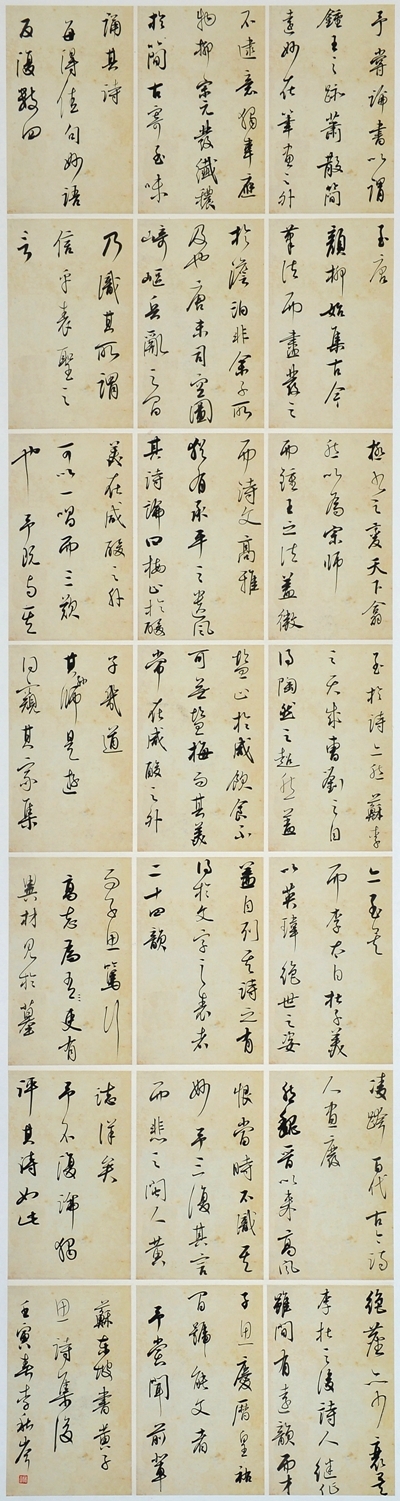 予嘗論書以謂
鍾王之跡蕭散簡
遠妙在筆畫之外
至唐
顏柳始集古今
筆法而盡發之
極書之變天下翕
然以為宗師
而鍾王之法益微
至於詩亦然蘇李
之天成曹劉之自
得陶之超然蓋
亦至矣
而李太白杜子美
以英瑋絕世之姿
凌跨百代古今詩
人盡廢
然魏晉以來高風
絕塵亦少衰矣
李杜之後詩人繼作
雖間有遠韻而才
不逮意獨韋應
物柳宗元發纖穠
於簡古寄至味
於澹泊非余子所
及也唐末司空圖
崎嶇兵亂之間
而詩文高雅
猶有承平之遺風
其詩論曰梅止於酸
鹽止於咸飲食不
可無鹽梅而其美
常在咸酸之外
蓋自列其詩之有
得於文字之表者
二十四韻
恨當時不識其
妙予三復其言
而悲之閩人黃
子思慶曆皇祐
間號能文者
予嘗聞前輩
誦其詩
每得佳句妙語
反復數四
乃識其所謂
信乎表聖之
言
美在咸酸之外
可以一唱而三歎
也 予既與其
子幾道
其孫師是遊
得窺其家集
而子思篤行
高志為吏有
異材見於墓
誌詳矣
予不復論獨
評其詩如此
蘇東坡書黃子
思詩集後
壬寅春李